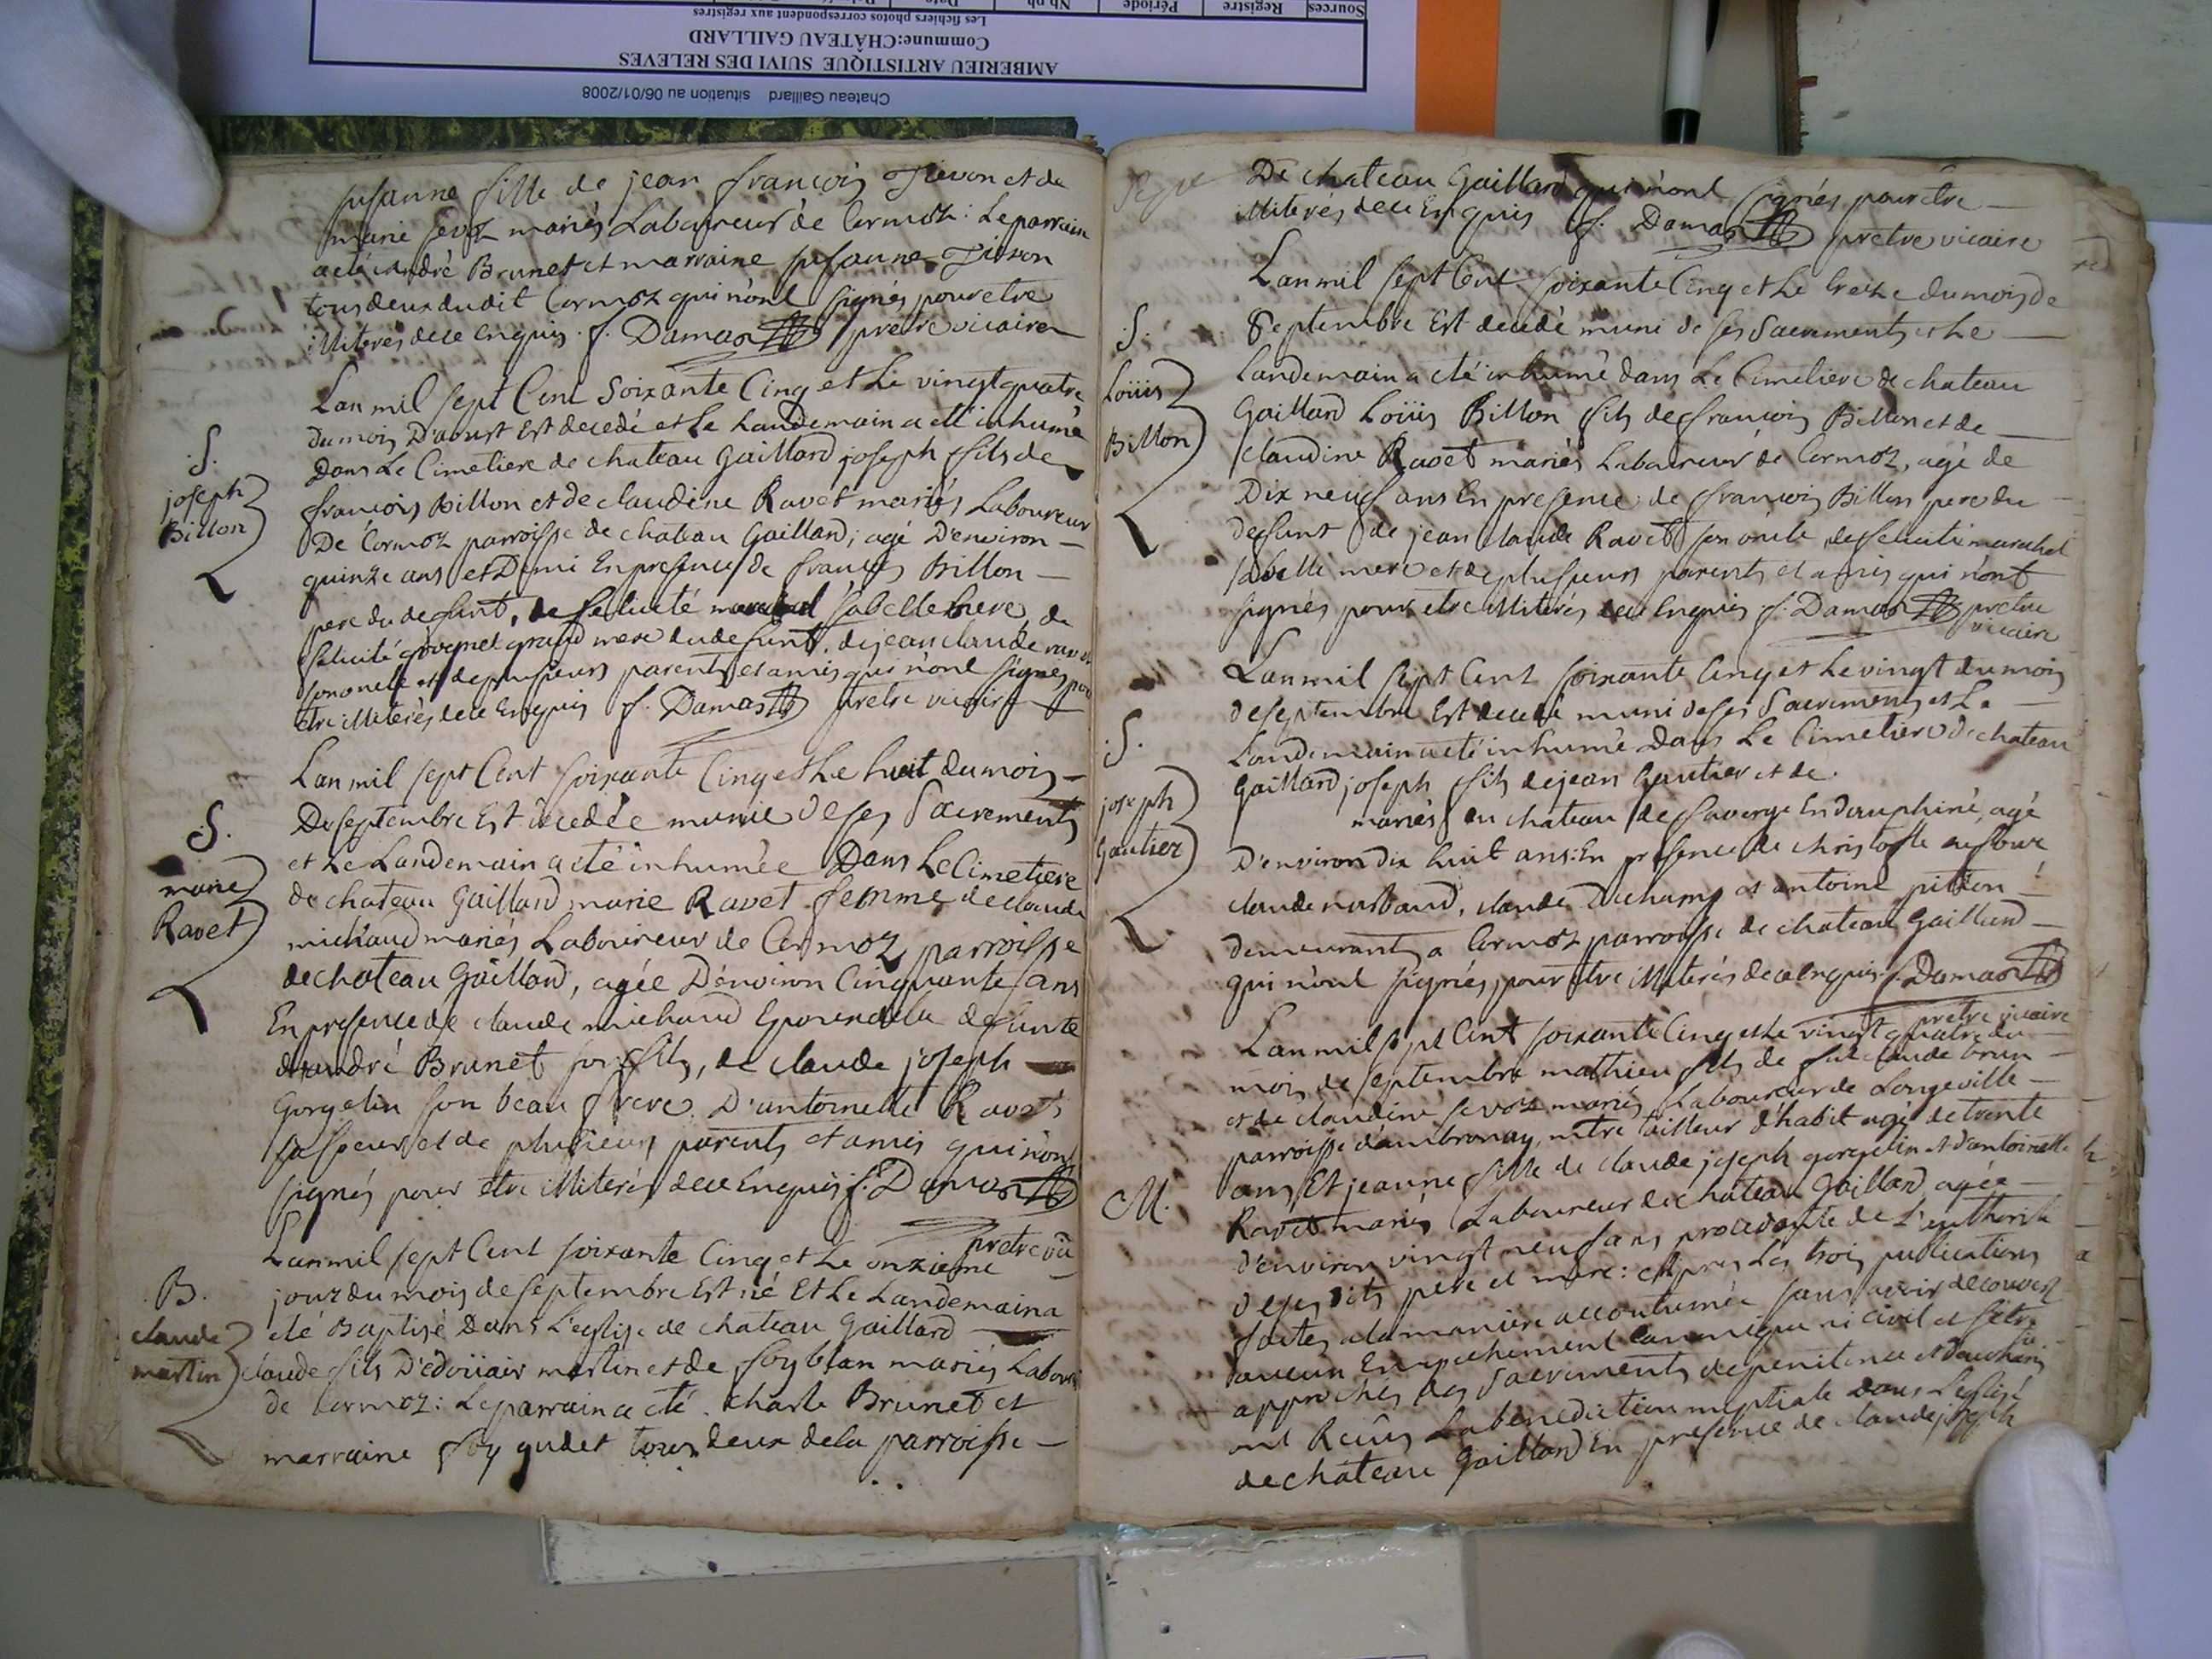 Chateau Gaillard situation au 06/01/2008
AMBERIEU ARTISTIQUE SUIVI DES RELEVES
Commune:CHÂTEAU GAILLARD
Les fichiers photos correspondent aux registres
Sources Registre Période Nb ph Date
susanne fille de jean françois et de
marie sevoz mariés Laboureur de Cormoz: Le parrain
a eté andré Brunet et marraine susanne
tous deux dudit Cormoz qui n'ont signés pour etre
illiterés de ce Enquis. f. Damas prêtre vicaire
Lan mil sept Cent Soixante Cinq et Le vingt quatre
du mois D'aoust Est decedé et Le Landemain a eté inhumé
S.
joseph
Billon
Dans Le Cimetiere de chateau Gaillard joseph fils de
françois Billon et de claudine Ravet mariés Laboureur
De Cormoz parroisse de chateau Gaillard; agé D'environ
quinze ans et Demi En presence de françois Billon
pere du defunt, de felicité sa belle mere, de
felicité grand mere du defunt, de jean claude ravet
son oncle et de plusieurs parents et amis qui n'ont signés pour
etre illiterés de ce Enquis f. Damas prêtre vicaire
Lan mil sept Cent soixante Cinq et Le huit du mois
De septembre Est decedée munie de ses Sacrements
S.
marie
Ravet
et Le Landemain a eté inhumée Dans Le Cimetiere
de chateau Gaillard marie Ravet femme de claude
michaud mariés Laboureur de Cormoz parroisse
de chateau Gaillard, agée D'environ Cinquante ans
En presence de claude michaud Epoux de la defunte
d'andré Brunet son fils, de claude joseph
Gorgelin son beau frere. D'antoinette Ravet
sa soeur et de plusieurs parents et amis qui n'ont
signés pour etre illiterés de ce Enquis f. Damas
prêtre vic
Lan mil sept Cent soixante Cinq et Le onzieme
B.
claude
martin
jour du mois de septembre Est né Et Le Landemain a
eté Baptisé Dans L'eglise de chateau Gaillard
claude fils D'edoüair martin et de foy blan mariés Labour
de Cormoz: Le parrain a eté charle Brunet et
marraine foy gudet tous deux de la parroisse
De chateau Gaillard qui n'ont signés pour être
illiterés de ce Enquis f. Damas prêtre vicaire
Lan mil sept Cent soixante Cinq et Le treize du mois de
S.
Loüis
Billon
Septembre Est decedé muni de ses Sacrements et Le
Landemain a eté inhumé dans Le Cimetiere de chateau
Gaillard Loüis Billon fils de françois Billon et de
claudine Ravet mariés Laboureur de Cormoz, agé de
Dix neuf ans En presence de françois Billon pere du
defunt de jean claude Ravet son oncle de felicité marechal
sa belle mere et de plusieurs parents et amis qui n'ont
signés pour etre illiterés de ce Enquis f. Damas prêtre
vicaire
Lan mil sept Cent soixante Cinq et Le vingt du mois
de septembre Est decedé muni de ses Sacrements et Le
S.
joseph
Gautier
Landemain a eté inhumé Dans Le Cimetiere de chateau
Gaillard joseph fils de jean Gautier et de
mariés au chateau de faverge En dauphiné, agé
D'environ dix huit ans: En presence de christofle
claude, claude Duchamp et antoine
demeurants a Cormoz parroisse de chateau Gaillard
qui n'ont signés pour etre illiterés de ce enquis f. Damas
prêtre vicaire
Lan mil sept Cent soixante Cinq et Le vingt quatre du
mois de septembre mathieu fils de feu claude brun
et de claudine sevoz mariés Laboureur de Longeville
parroisse d'ambronay, mtre tailleur d'habit agé de trente
M.
ans Et jeanne fille de claude joseph gorgelin et d'antoinette
Ravet mariés Laboureur de chateau Gaillard agée
d'environ vingt neuf ans procedante de L'authorité
de ses dits pere et mere: apres Les trois publications
faites a la maniere accoutumée sans avoir decouvert
aucun Empechement Canonique ni civil et s'être
approchés des Sacrements de penitence et d'eucharistie
ont Reçûs La benediction nuptiale dans L'eglise
de chateau Gaillard En presence de claude joseph